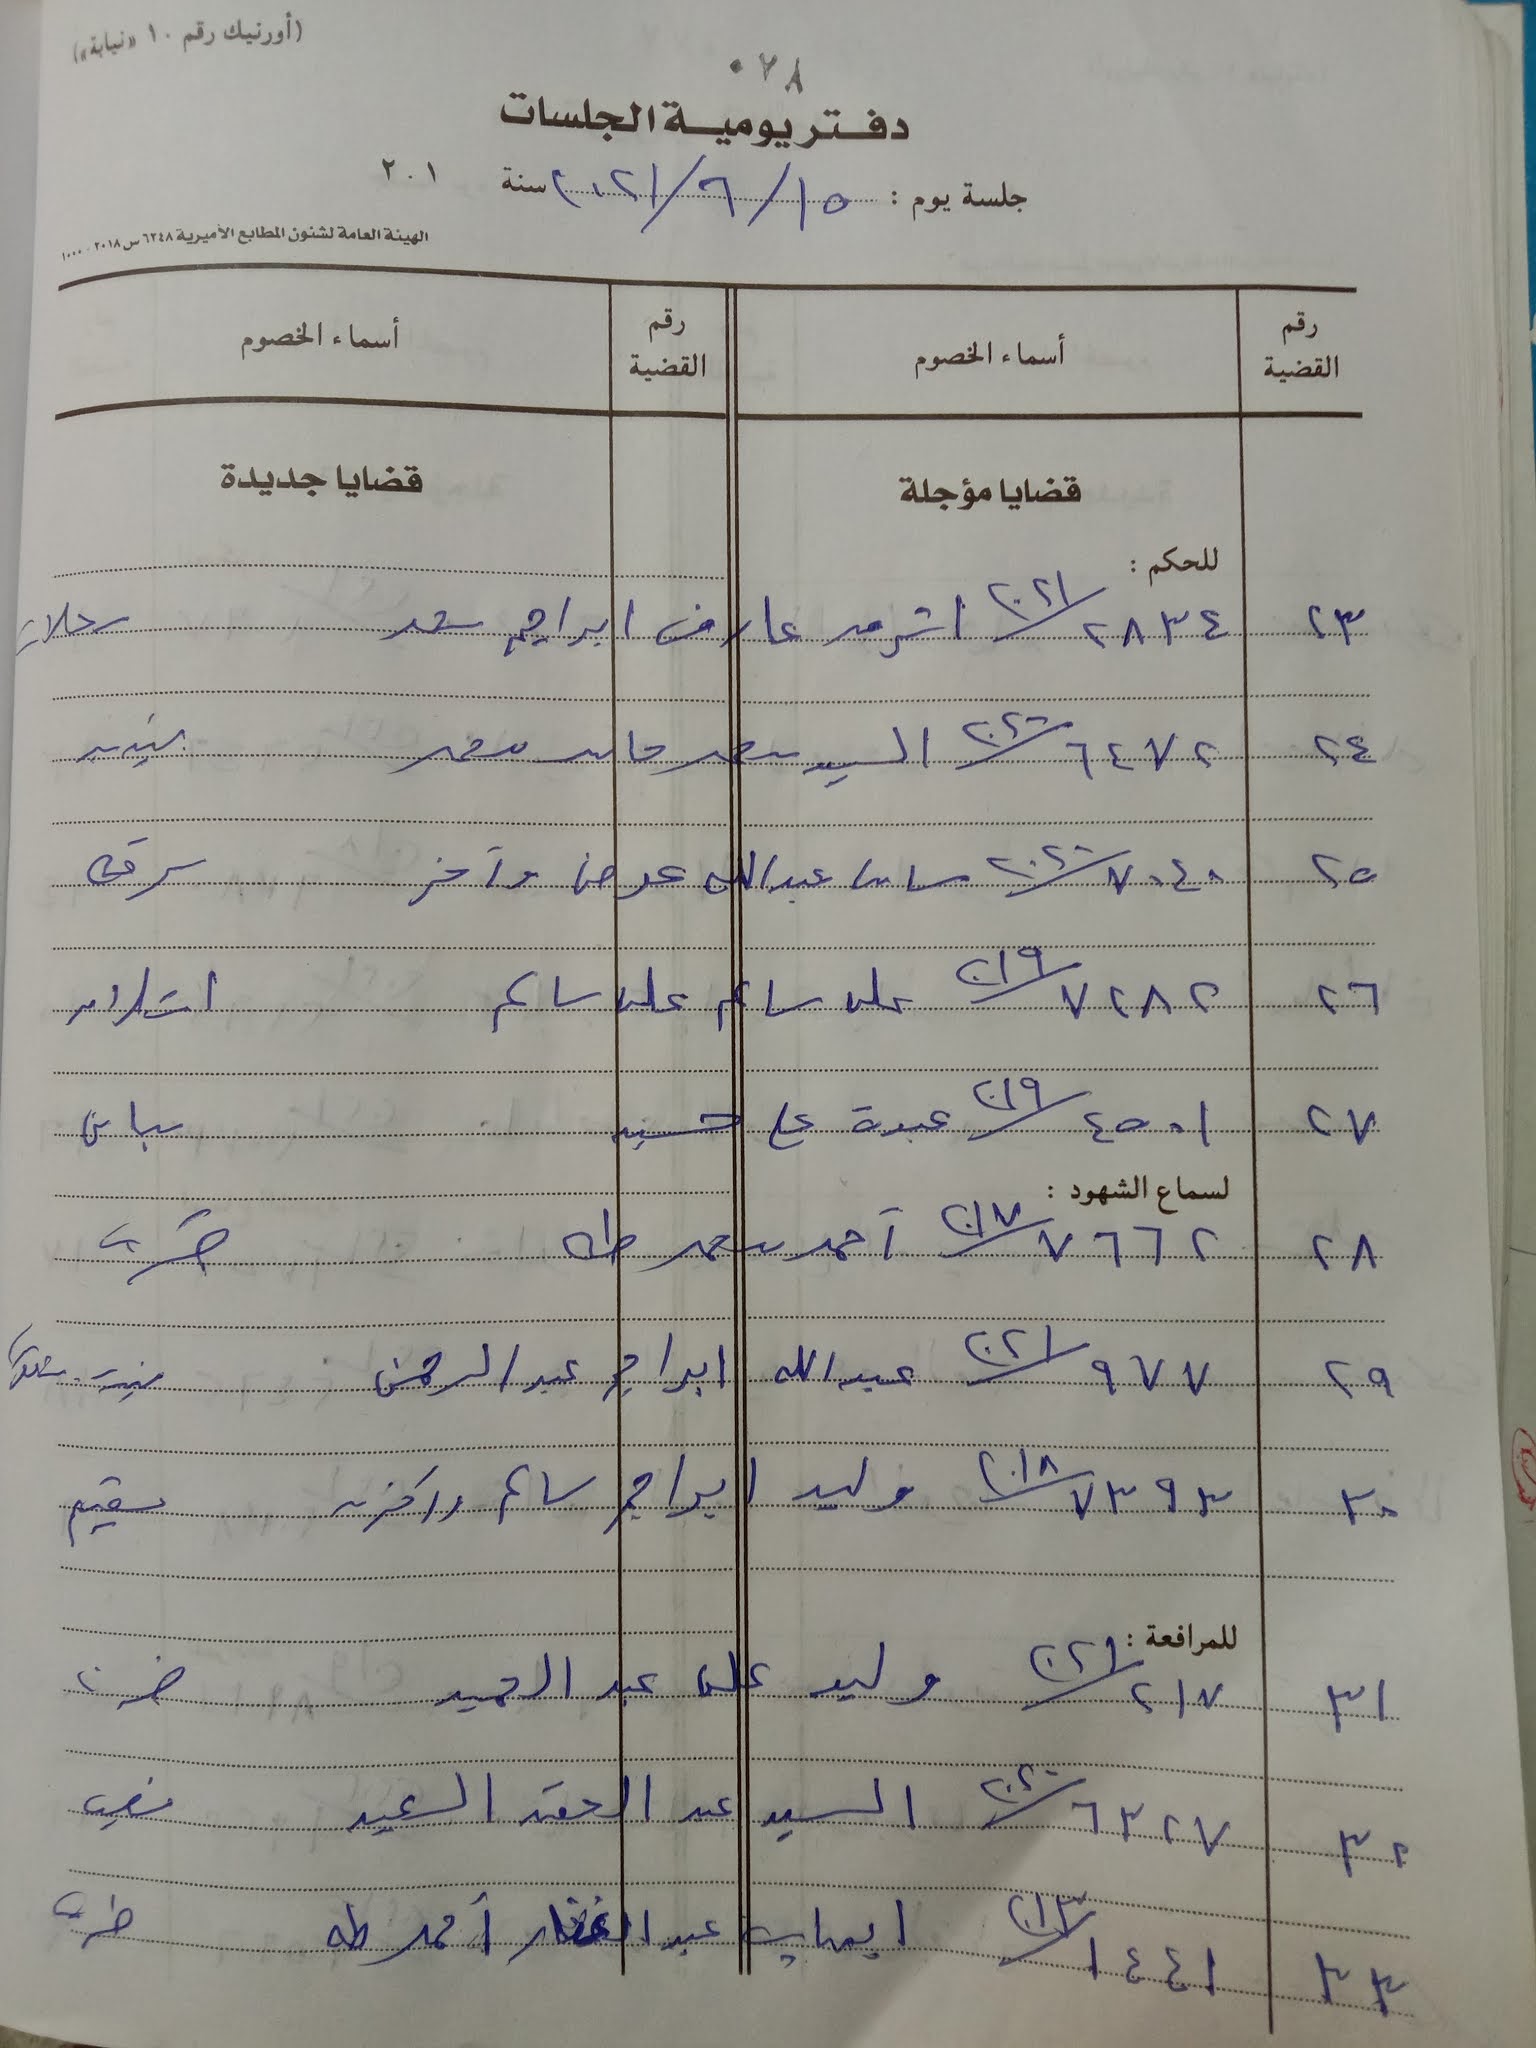 (أورنيك رقم ١٠ «نيابة»)
٠٢٨
دفتر يومية الجلسات
جلسة يوم : ١٥/٦/٢٠٢١ سنة ٢٠١
الهيئة العامة لشئون المطابع الأميرية ٦٢٤٨ س ٢٠١٨ - ١٠٠٠
رقم القضية أسماء الخصوم رقم القضية أسماء الخصوم
قضايا مؤجلة قضايا جديدة
للحكم :
٢٣ ٢٨٣٤/٢٠٢١ اشرف عارف ابراهيم سعد
٢٤ ٦٤٧٢/٢٠٢٠ السيد محمد حامد محمد تبديد
٢٥ ٧٠٤٠/٢٠٢٠ عبدالله عوض وآخر سرقة
٢٦ ٧٢٨٢/٢٠١٩ على سالم على سالم
٢٧ ٤٥٠١/٢٠١٩ عبدة على حسنين مباني
لسماع الشهود :
٢٨ ٧٦٦٢/٢٠١٧ أحمد محمد طه ضرب
٢٩ ٩٧٧/٢٠٢١ عبدالله ابراهيم عبدالرحمن
٣٠ ٧٣٩٣/٢٠١٨ وليد ابراهيم سالم وآخرين
للمرافعة :
٣١ ٢١٧/٢٠٢١ وليد على عبد الحميد ضرب
٣٢ ٦٣٢٧/٢٠٢٠ السيد عبد السيد
٣٣ ١٤٤١/٢٠١٣ ايهاب عبد الغفار أحمد طه ضرب